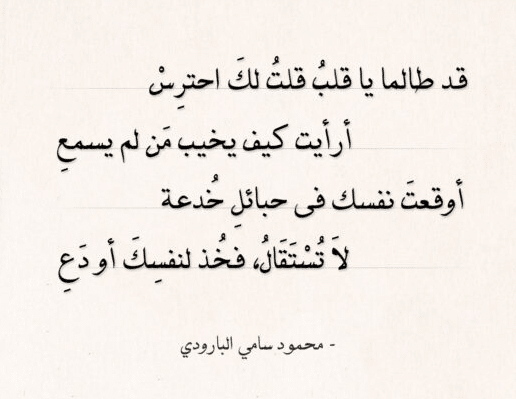 قد طالما يا قلبُ قلتُ لكَ احترِسْ
أرأيت كيف يخيب مَن لم يسمعِ
أوقعتَ نفسك فى حبائلِ خُدعة
لاَ تُسْتَقَالُ، فخُذ لنفسِكَ أو دَعِ
- محمود سامي البارودي